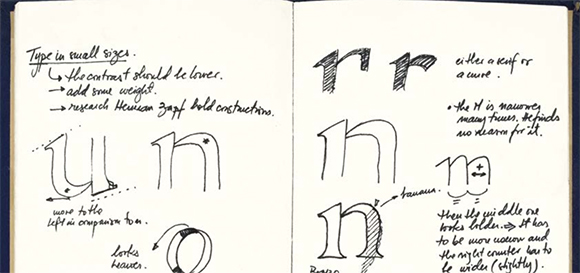 Type in small sizes.
the contrast should be lower.
→ add some weight.
→ research Herman Zapf bold constructions.
u n
move to the
left in comparison to n.
looks
heavier.
r r
either a serif or
a curve.
• the M is narrower
many times. He finds
no reason for it.
n
m
+
n
banana
then the middle one
looks bolder. → It has
to be more narrow and
the right counter has to
be wider (slightly).